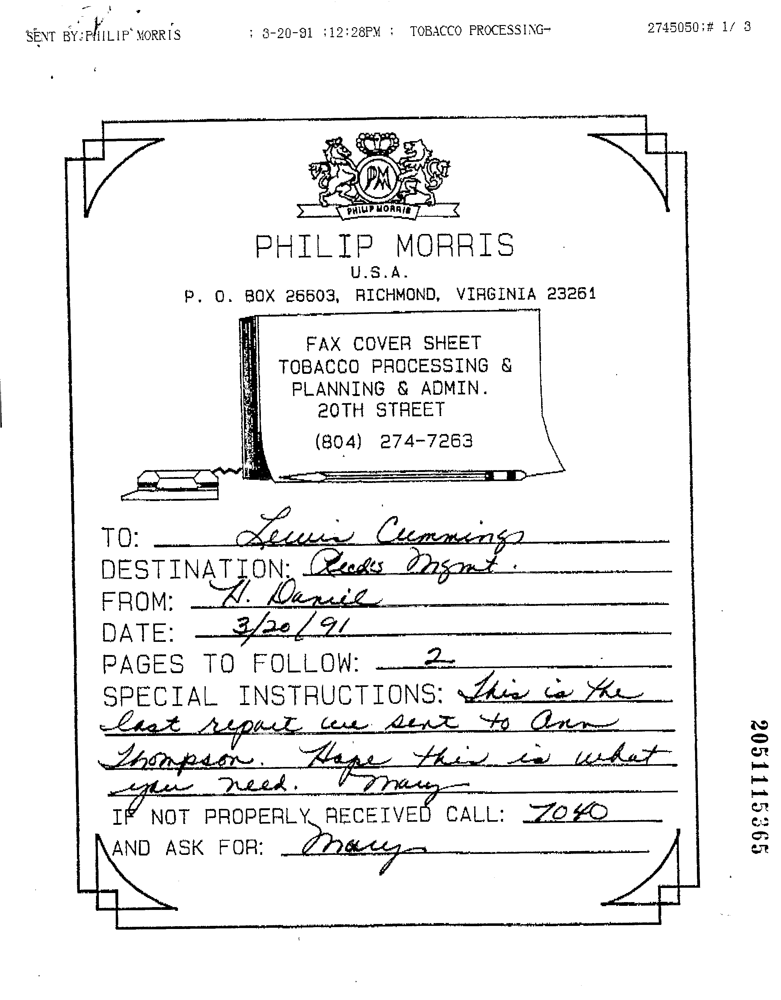 SENT BY:PHILIP MORRIS : 3-20-91 :12:28PM : TOBACCO PROCESSING→ 2745050;# 1/ 3
PM
PHILIP MORRIS
PHILIP MORRIS
U.S.A.
P. O. BOX 26603, RICHMOND, VIRGINIA 23261
FAX COVER SHEET
TOBACCO PROCESSING &
PLANNING & ADMIN.
20TH STREET
(804) 274-7263
TO: Lewis Cummings
DESTINATION: Mgmt.
FROM: H. Daniel
DATE: 3/20/91
PAGES TO FOLLOW: 2
SPECIAL INSTRUCTIONS: This is the
last report we sent to Ann
Thompson. Hope this is what
you need. Mary
IF NOT PROPERLY RECEIVED CALL: 7040
AND ASK FOR: Mary
2051115365